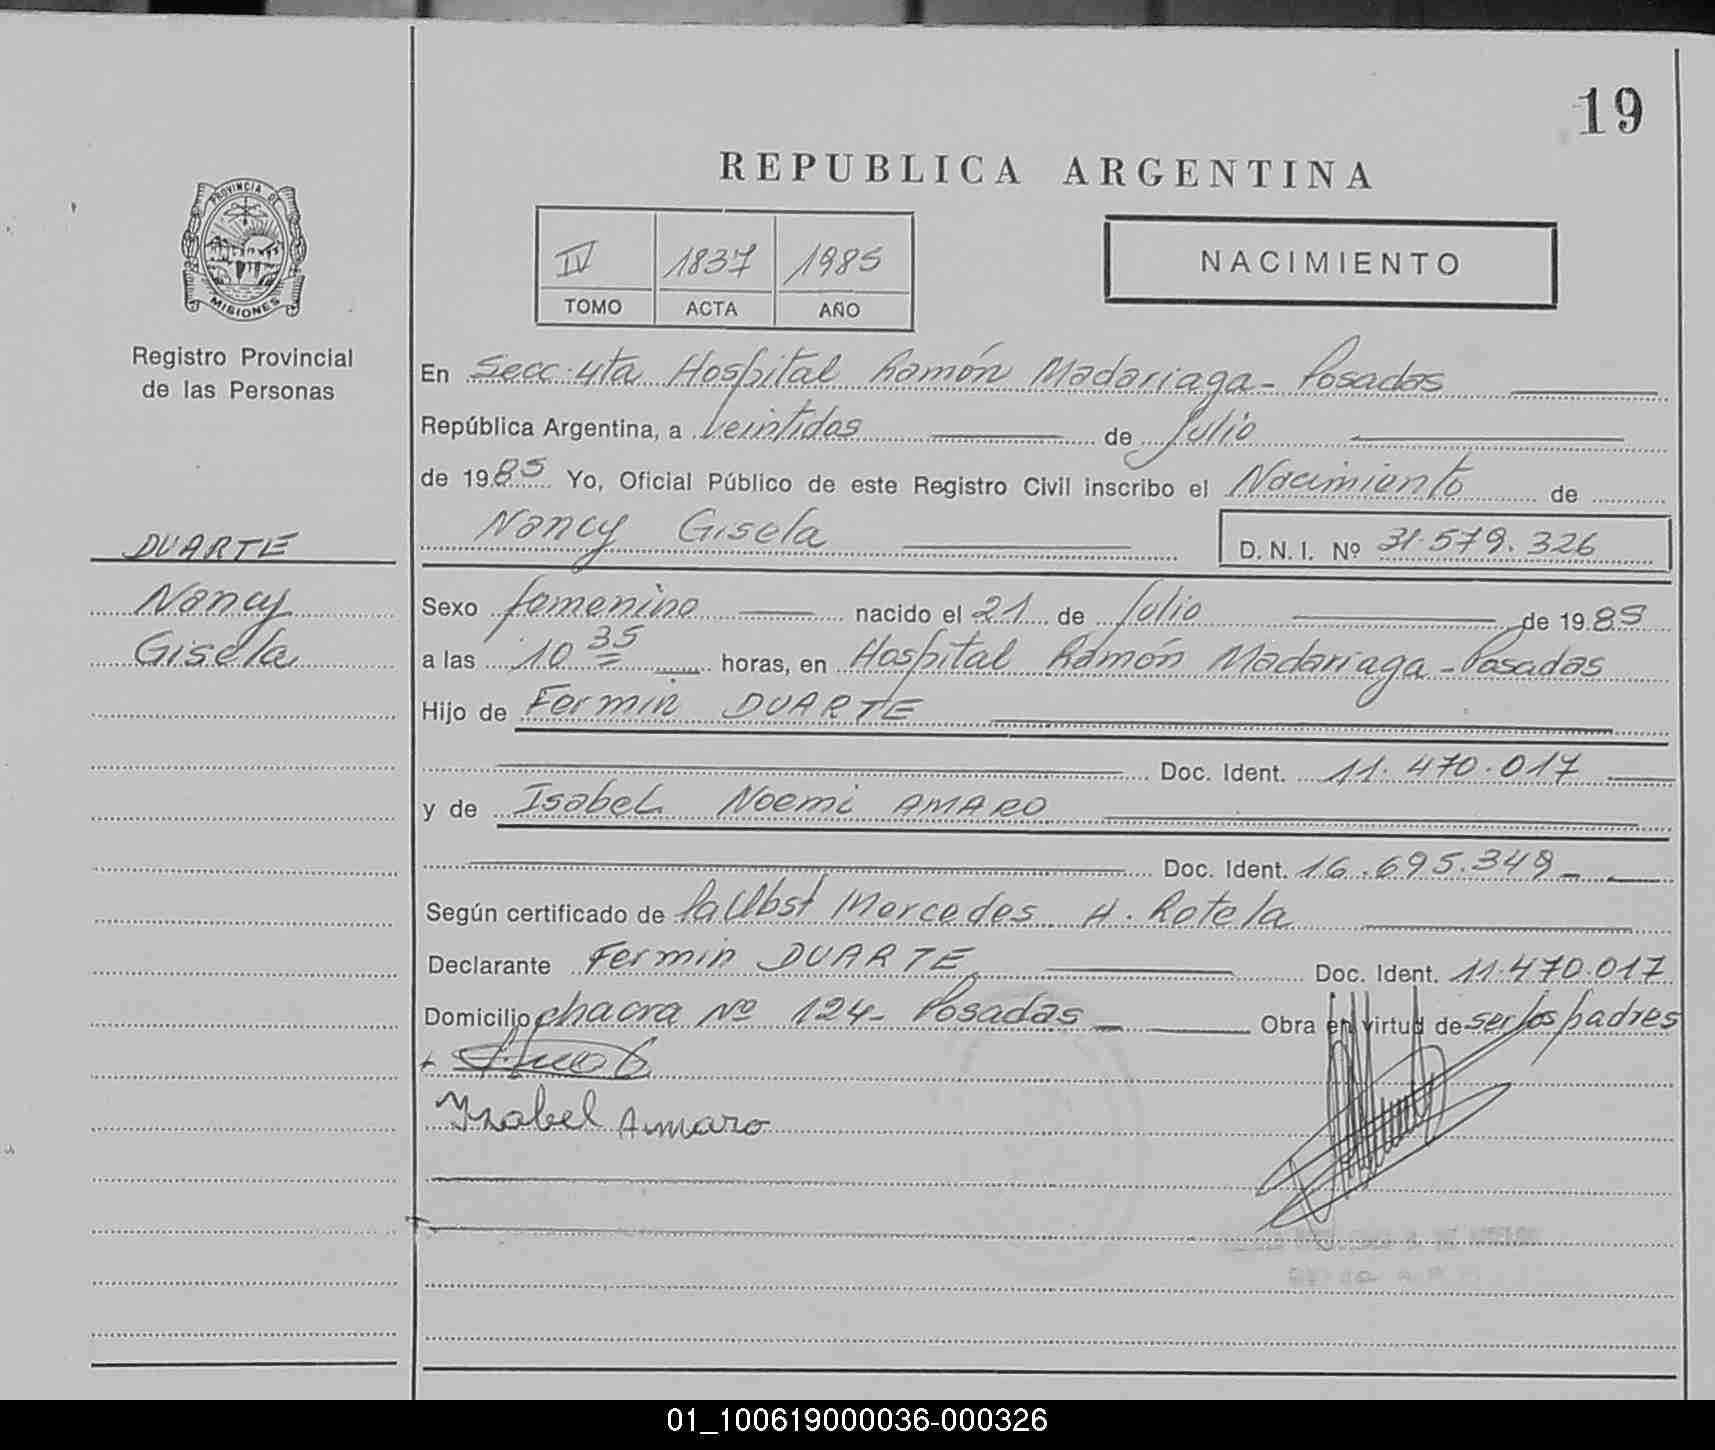 19
REPUBLICA ARGENTINA
PROVINCIA DE
MISIONES
Registro Provincial
de las Personas
IV 1837 1985
TOMO ACTA AÑO
NACIMIENTO
En Secc. 4ta Hospital Ramón Madariaga - Posadas
República Argentina, a Veintidos de Julio
de 1985 Yo, Oficial Público de este Registro Civil inscribo el Nacimiento de
Nancy Gisela D. N. I. Nº 31.579.326
DUARTE
Nancy
Gisela
Sexo femenino nacido el 21 de Julio de 1985
a las 10 35 horas, en Hospital Ramón Madariaga - Posadas
Hijo de Fermin DUARTE
Doc. Ident. 11.470.017
y de Isabel Noemi AMARO
Doc. Ident. 16.695.349
Según certificado de Mercedes H. Rotela
Declarante Fermin DUARTE Doc. Ident. 11.470.017
Domicilio chacra Nº 124 - Posadas Obra en virtud de ser los padres
Isabel Amaro
01_100619000036-000326